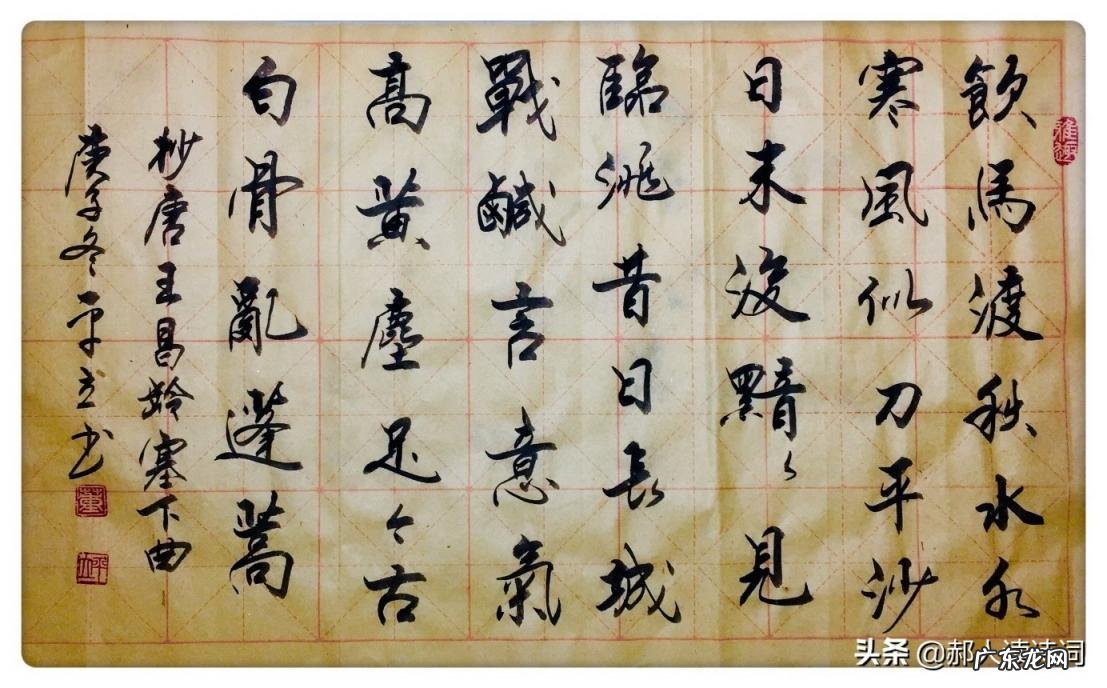 飲馬渡秋水水
寒風似刀平沙
日未没黯〻見
臨洮昔日長城
戰鹹言意氣
高黃塵足今古
白骨亂蓬蒿
抄唐王昌齡塞下曲
庚子冬平立书
头条 @郝
诗词
广东龙网